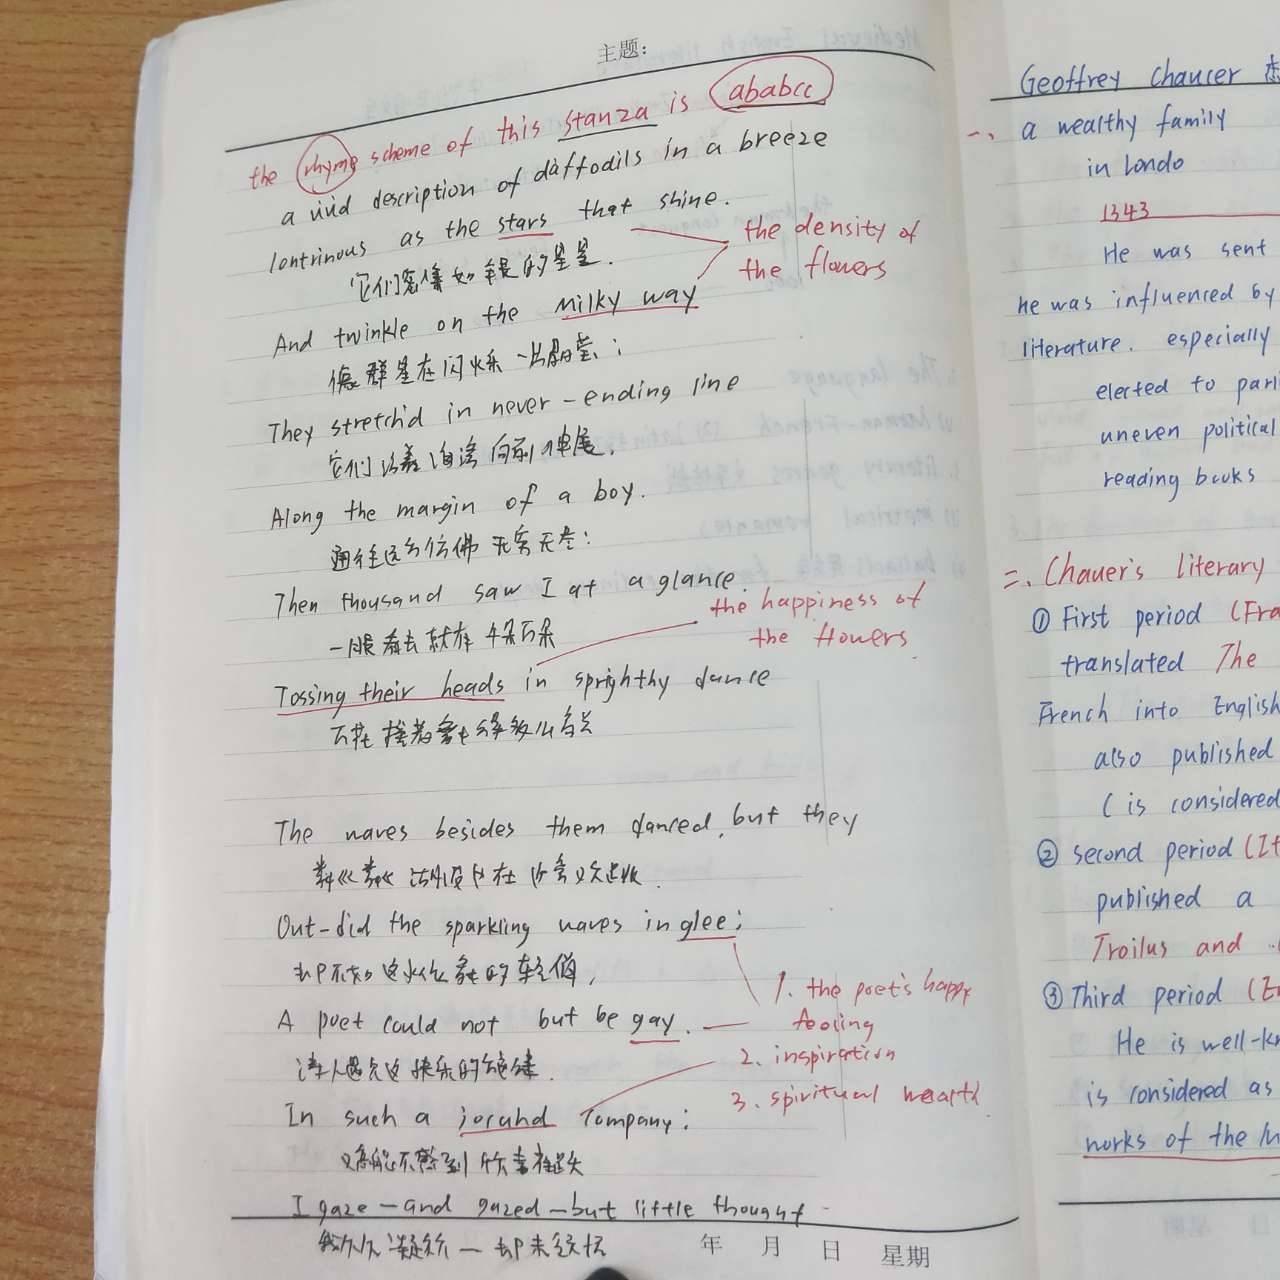 主题:
the rhyme scheme of this stanza is ababcc
a vivid description of daffodils in a breeze
lontrinous as the stars that shine.
的星星.
the density of
the flowers
And twinkle on the milky way
群星在闪烁一
They stretch'd in never-ending line
它们沿着 向前伸展.
Along the margin of a boy.
通往远方仿佛无穷无尽;
Then thousand saw I at a glance.
一眼看去就有千朵万朵
the happiness of
the flowers
Tossing their heads in sprighthy dance
The waves besides them danced, but they
Out-did the sparkling waves in glee;
却不如这水仙 的轻俏,
A poet could not but be gay.
诗人遇见这快乐的
1. the poet's happy
feoling
2. inspiration
3. spiritual wealth
In such a jocund company:
In 能不感到欣喜
I gaze-and gazed-but little thought
我久久凝望一却未
年 月 日 星期
Geoffrey Chaucer
一、a wealthy family
in Londo
1343
He was sent
he was influenced by
literature. especially
elected to parli
uneven political
reading books
二、Chauer's literary
① First period (Fra
translated The
French into English
also published
( is considered
② second period (It
published a
Troilus and
③ Third period (En
He is well-kn
is considered as
works of the